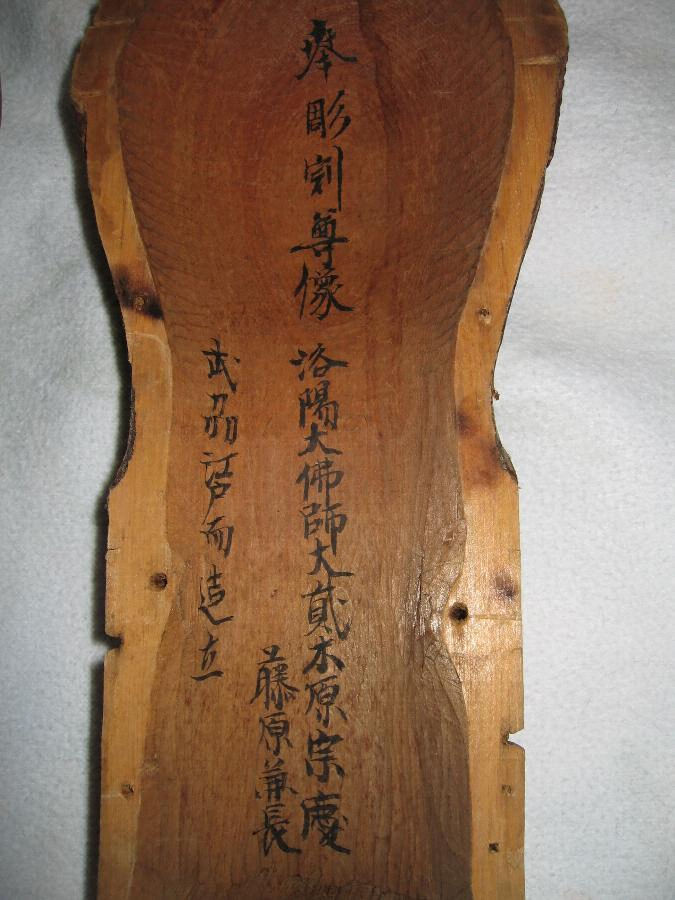 奉彫刻尊像
洛陽大佛師大貳木原宗慶
藤原兼長
武刕江戸而造立